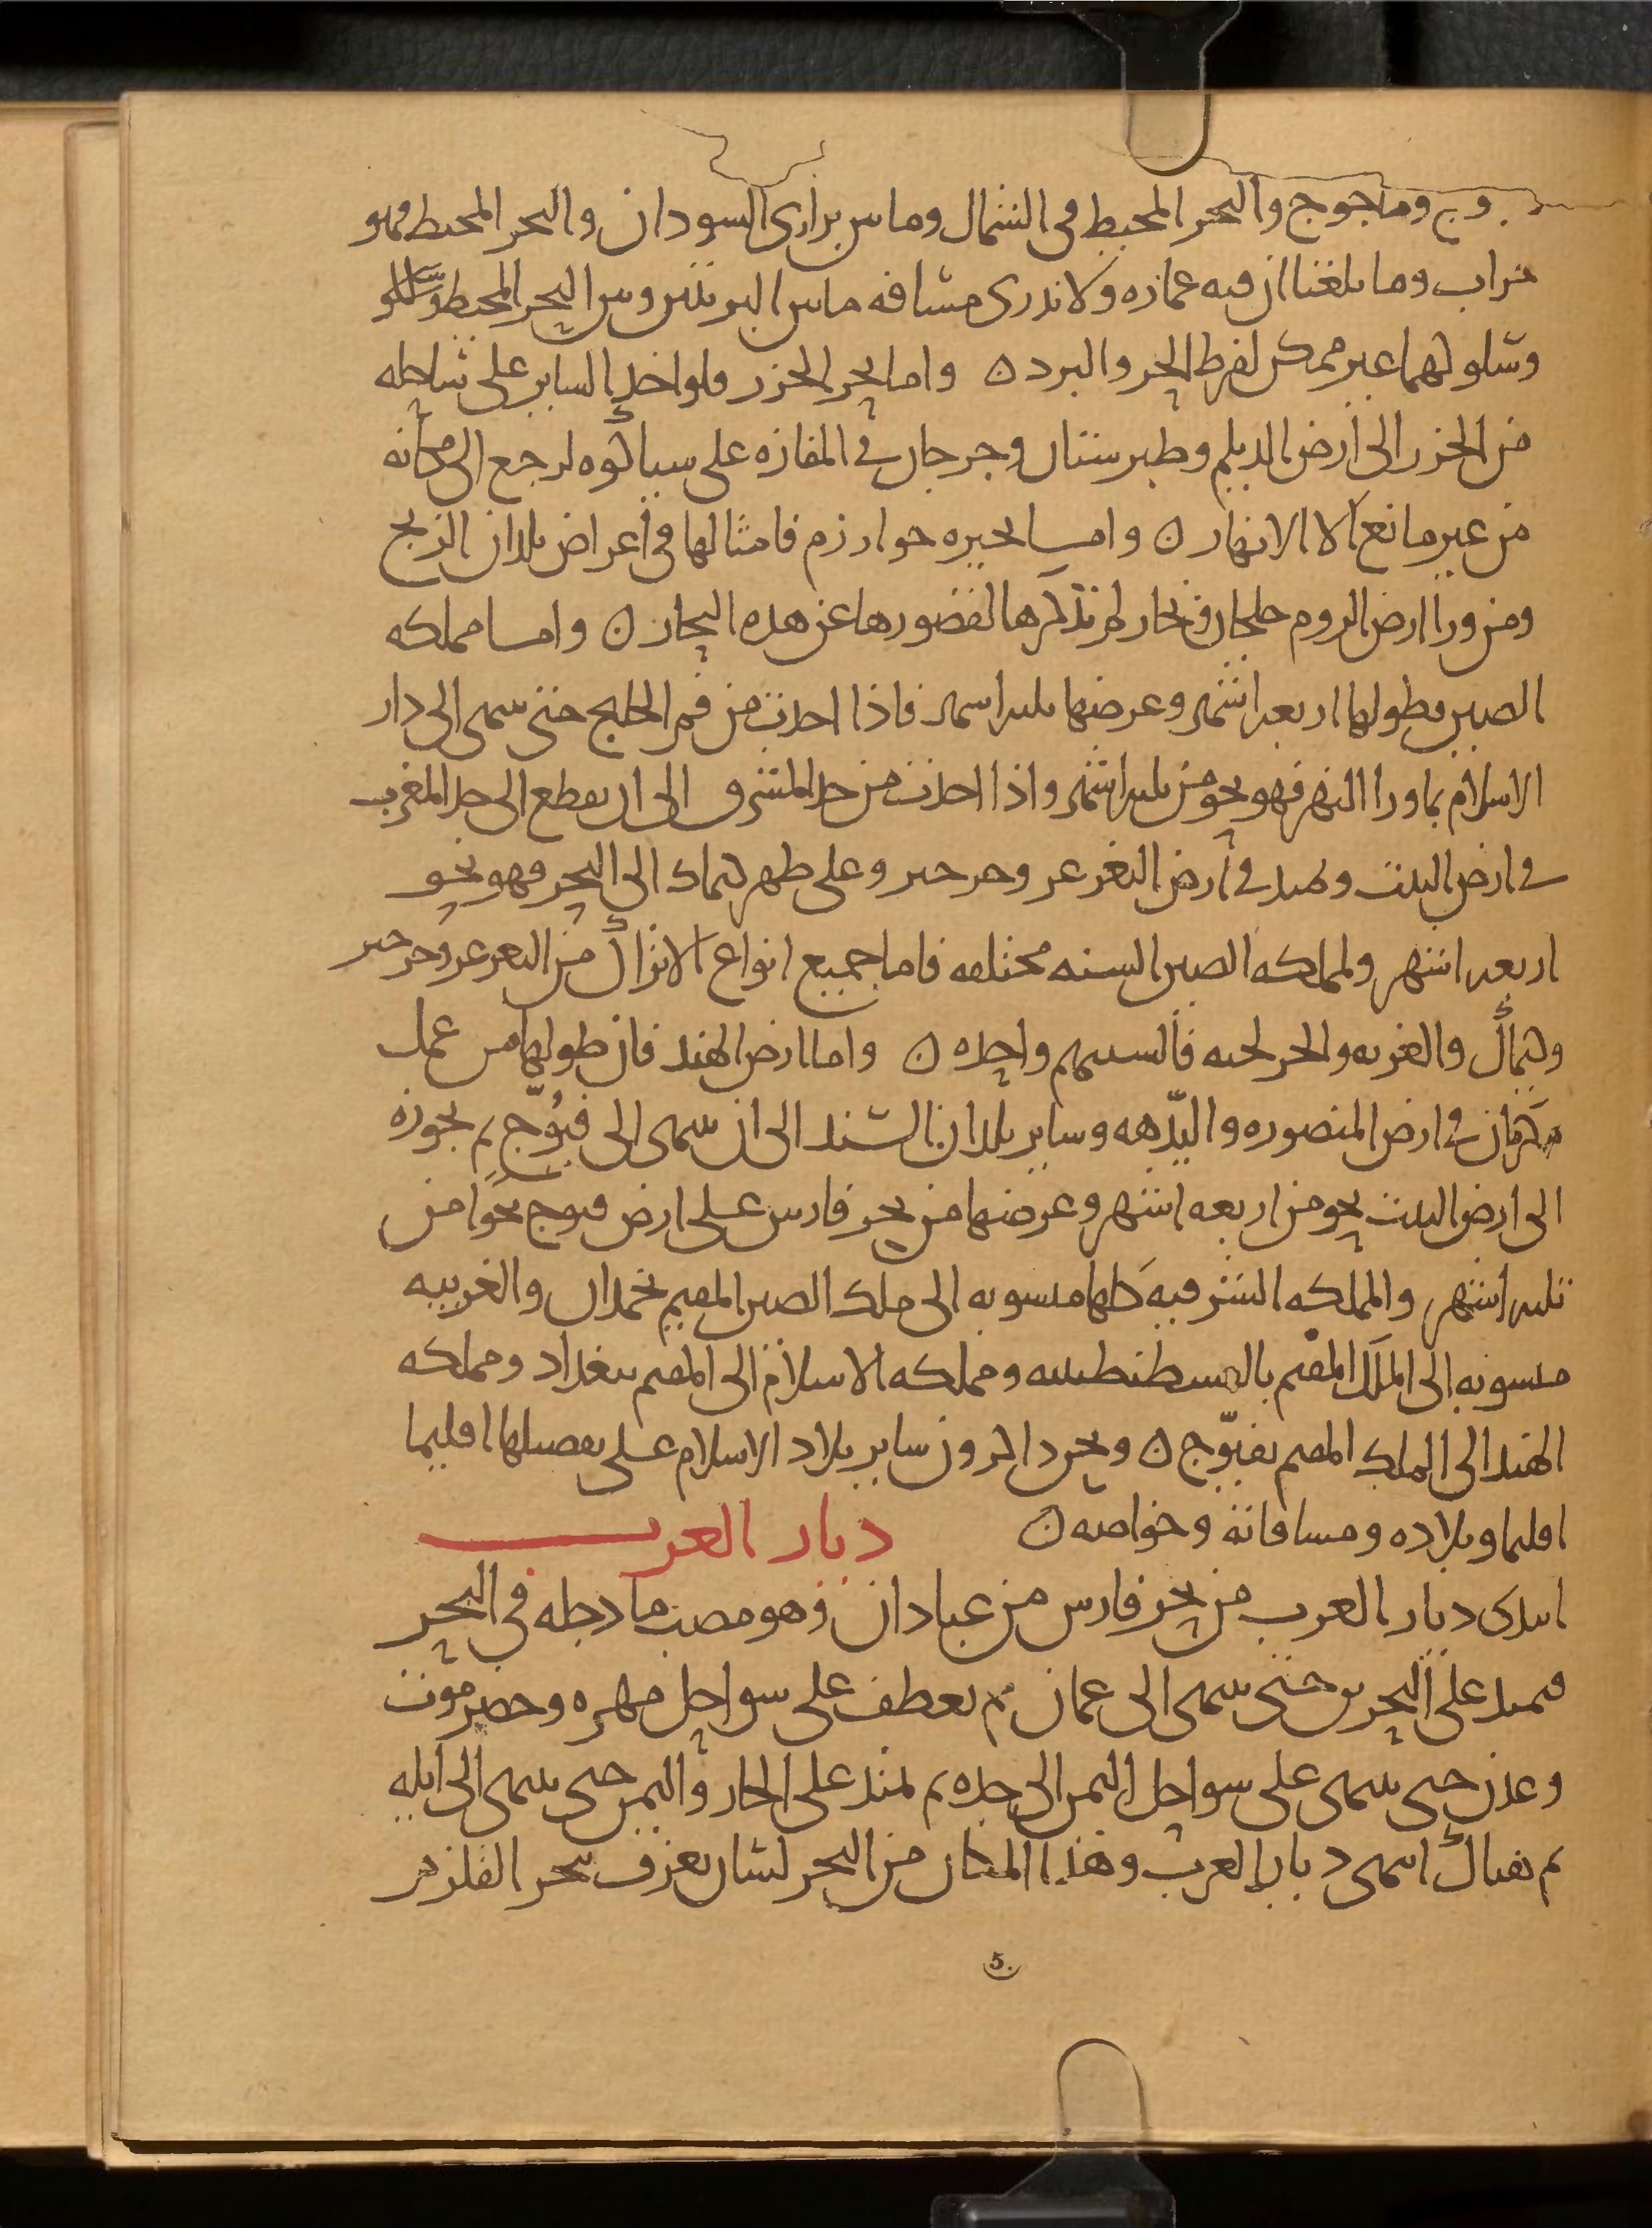 جوج وماجوج والبحر المحيط في الشمال وما بين براري السودان والبحر المحيط فهو
خراب وما بلغنا ان فيه عمارة ولا ندري مسافة ما بين البريتين وبين البحر المحيط
وسلوكهما غير ممكن لفرط الحر والبرد ن واما بحر الخزر فلو اخذ الساير على ساحله
من الخزر الى ارض الديلم وطبرستان وجرجان في المفازة على سياكوه لرجع الى مكانه
من غير مانع الا الانهار ن واما بحيره خوارزم فامثالها في اعراض بلدان الزنج
ومن ورا ارض الروم خلجان وبحار لم نذكرها لقصورها عن هذه البحار ن واما مملكه
الصين فطولها اربعه اشهر وعرضها ثلثه اشهر فاذا اخذت من فم الخليج حتى تنتهي الى دار
الاسلام بماورا النهر فهو نحو من ثلثه اشهر واذا اخذت من حد المشرق الى ان تقطع الى حد المغرب
في ارض التبت وتمتد في ارض التغزغز وخرخيز وعلى ظهر كيماك الى البحر فهو نحو
اربعه اشهر ولمملكه الصين السنه مختلفه فاما جميع انواع الاتراك من التغزغز وخرخيز
وكيماك والغزيه والخرلخيه فالسنتهم واحده ن واما ارض الهند فان طولها من عمل
مكران في ارض المنصوره والبدهه وساير بلدان السند الى ان تنتهي الى قنوج ثم تجوزه
الى ارض التبت نحو من اربعه اشهر وعرضها من بحر فارس على ارض قنوج نحوا من
ثلثه اشهر والمملكه الشرقيه كلها منسوبه الى ملك الصين المقيم بخمدان والغربيه
منسوبه الى الملك المقيم بالقسطنطينيه ومملكه الاسلام الى المقيم ببغداد ومملكه
الهند الى الملك المقيم بقنوج ن ونحن ذاكرون ساير بلاد الاسلام على تفصيلها اقليما
اقليما وبلاده ومسافاته وخواصه ن ديار العرب
ابتدى ديار العرب من بحر فارس من عبادان وهو مصب ما دجله في البحر
فيمتد على البحرين حتى ينتهي الى عمان ثم يعطف على سواحل مهره وحضرموت
وعدن حتى ينتهي على سواحل اليمن الى جده ثم يمتد على الجار واليمن حتى ينتهي الى ايله
ثم هناك انتهى ديار العرب وهذا المكان من البحر لسان يعرف ببحر القلزم
5